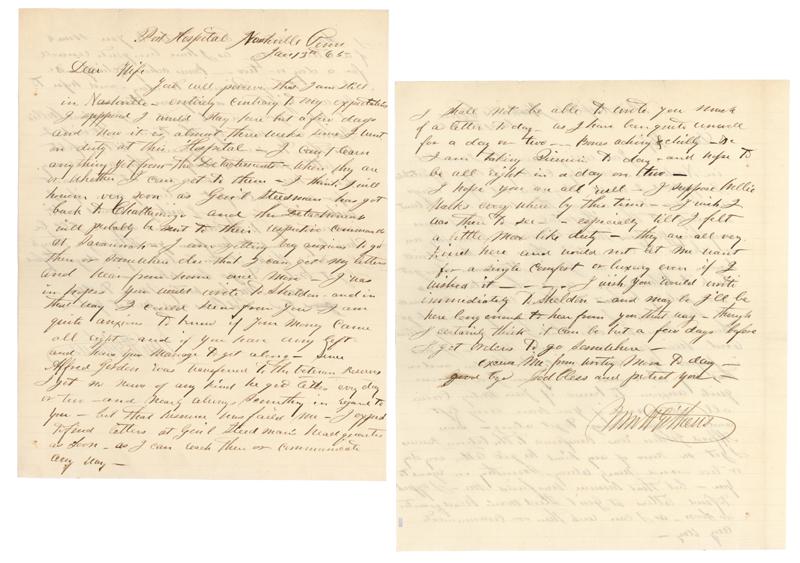 Post Hospital Nashville Tenn
Jan 13th 65
Dear Wife
You will perceive that I am still
in Nashville entirely contrary to my expectations
I supposed I would stay here but a few days
and now it is almost three weeks since I went
on duty at this Hospital - I can't learn
anything yet from the Detachments - where they are
or whether I can get to them - I think I will
however very soon as Genl Steedman has got
back to Chattanooga and the Detachments
will probably be sent to their respective commands
at Savannah - I am getting very anxious to go
there or somewhere else that I can get my letters
and hear from home once more - I was
in hopes you would write to Sheldon and in
that way I could hear from you I am
quite anxious to know if your money came
all right - and if you have any left
and how you manage to get along - Since
Alfred was transferred to the Veteran Reserve
I got no news of any kind he got letters every day
or two - and nearly always something in regard to
you - but that has failed me - I expect
to find letters at Genl Steedman's Head quarters
as soon - as I can reach them or communicate
any way -
I shall not be able to write you much
of a letter to day - as I have been quite unwell
for a day or two - Bones aching & chilly -
I am taking Quinine to day - and hope to
be all right in a day or two -
I hope you are all well - I suppose Willie
walks every where by this time - I wish I
was there to see - especially till I felt
a little more like duty - they are all very
kind here and would not let me want
for a single comfort or luxury even if I
wished it - - - I wish you would write
immediately to Sheldon - and may be I'll be
here long enough to hear from you that way - though
I certainly think it can be but a few days before
I get orders to go somewhere -
excuse me from writing more to day -
good bye God bless and protect you -
Githens